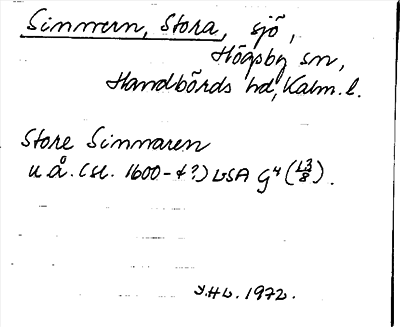 Simmern, Stora, sjö,
Högsby sn,
Handbörds hd, Kalm. l.
Store Simmaren
u å. (sl. 1600-t?) LSA G⁴ (13/8).
Y.HL. 1972.